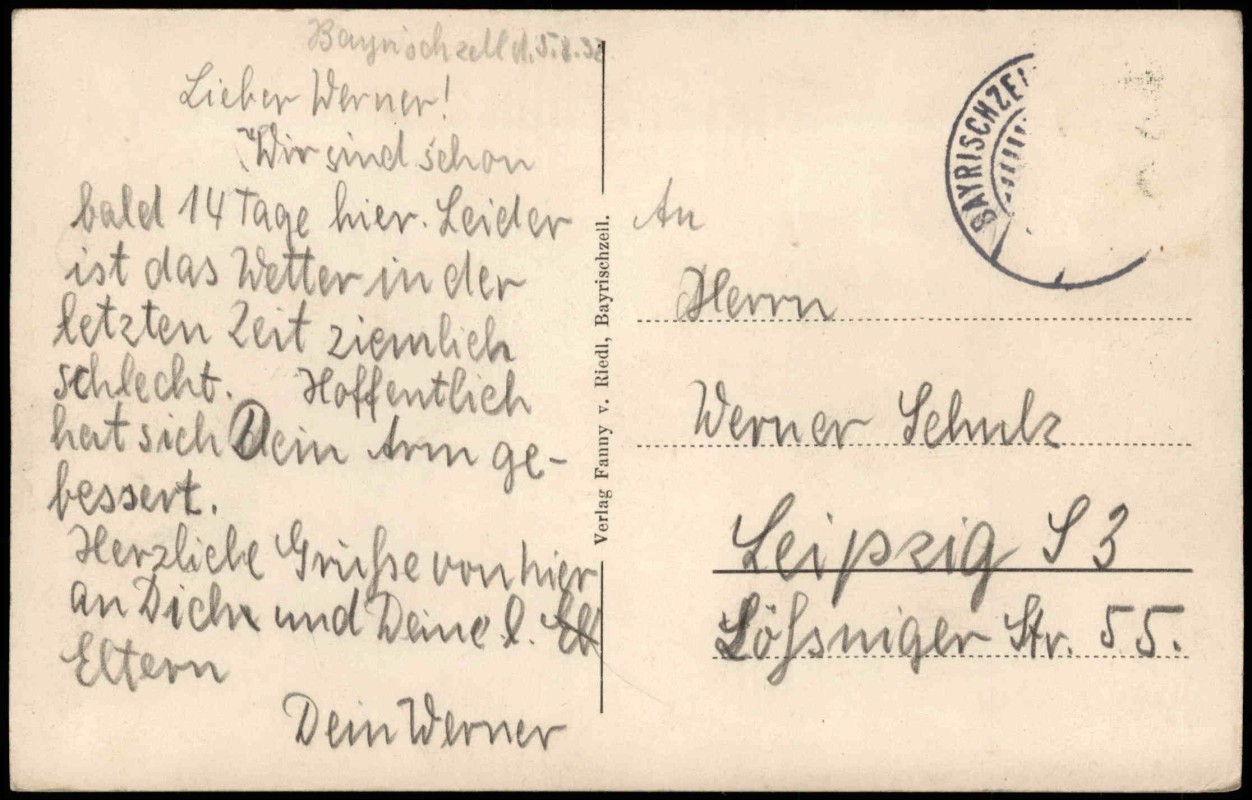 Bayrischzell d. 5.8.32
Lieber Werner!
Wir sind schon
bald 14 Tage hier. Leider
ist das Wetter in der
letzten Zeit ziemlich
schlecht. Hoffentlich
hat sich Dein Arm ge-
bessert.
Herzliche Grüße von hier
an Dich und Deine l. Elt
Eltern
Dein Werner
Verlag Fanny v. Riedl, Bayrischzell.
BAYRISCHZEL
An
Herrn
Werner Schulz
Leipzig S 3
Lößniger Str. 55.